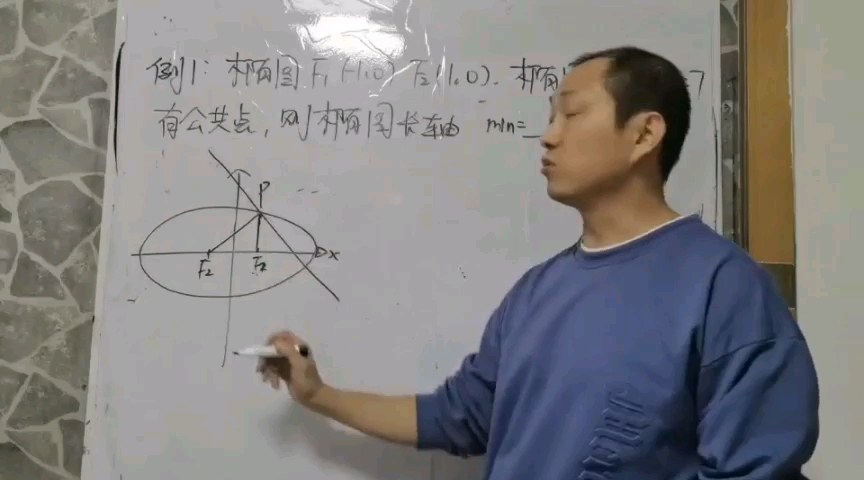 例1: 椭圆 F₁(-1,0) F₂(1,0). 椭 7
有公共点, 则椭圆长轴 min=_
P
F₂ F₂ x